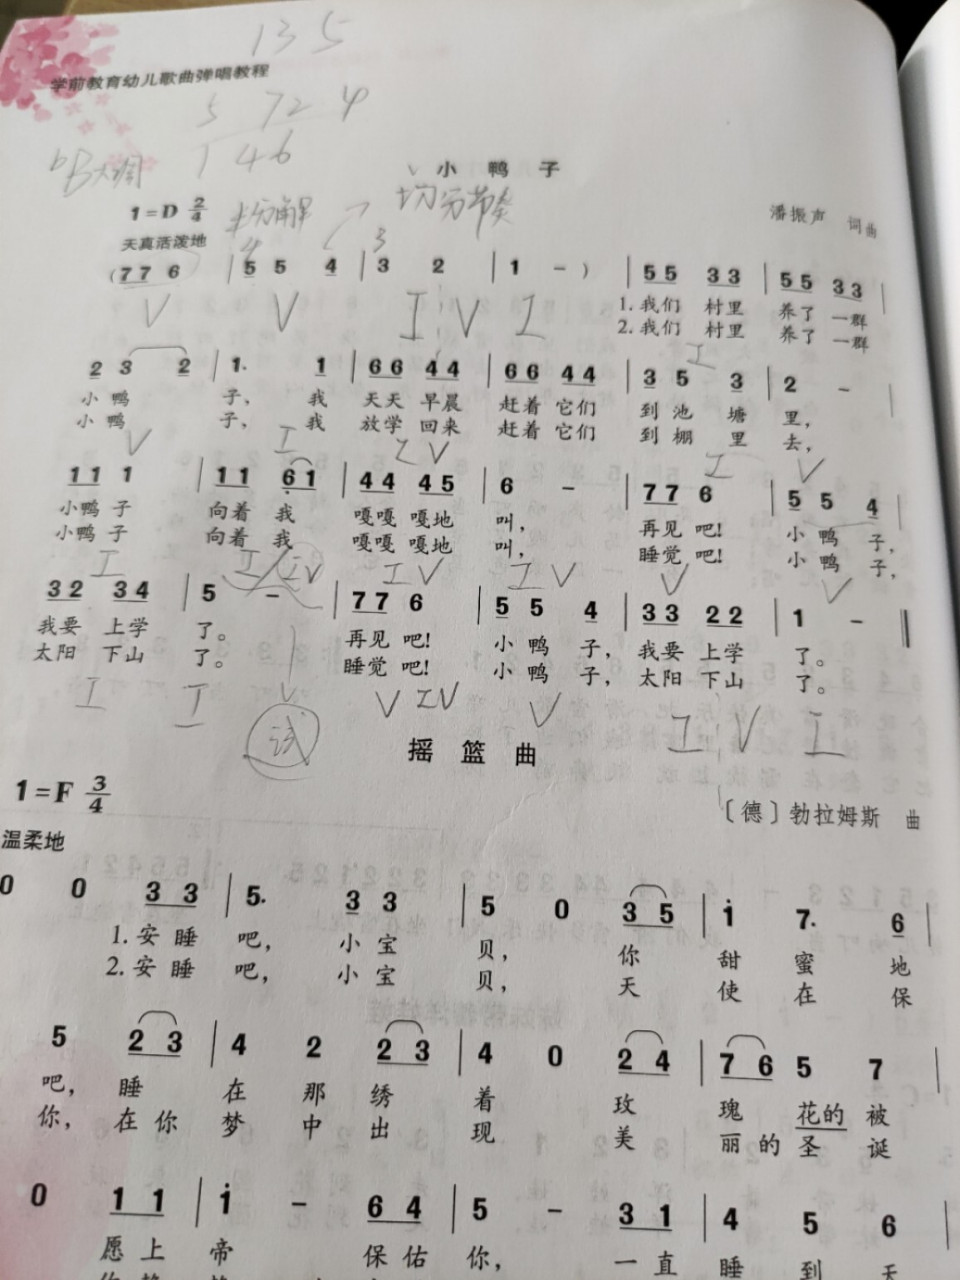 1 3 5
学前教育幼儿歌曲弹唱教程
5 7 2 4
1 4 6
bB大调
小 鸭 子
1=D 2/4
半分解
切分节奏
潘振声 词曲
天真活泼地
(7 7 6 | 5 5 4 | 3 2 | 1 - ) | 5 5 3 3 | 5 5 3 3 |
V V I V I
1. 我们 村里 养了 一群
2. 我们 村里 养了 一群
I
2 3 2 | 1. 1 | 6 6 4 4 | 6 6 4 4 | 3 5 3 | 2 - |
小 鸭 子, 我 天天 早晨 赶着 它们 到 池 塘 里,
小 鸭 子, 我 放学 回来 赶着 它们 到 棚 里 去,
V I IV I V
1 1 1 | 1 1 6 1 | 4 4 4 5 | 6 - | 7 7 6 | 5 5 4 |
小鸭 子 向着 我 嘎嘎 嘎地 叫, 再见 吧! 小 鸭 子,
小鸭 子 向着 我 嘎嘎 嘎地 叫, 睡觉 吧! 小 鸭 子,
I I IV IV IV V V
3 2 3 4 | 5 - | 7 7 6 | 5 5 4 | 3 3 2 2 | 1 - ‖
我要 上学 了。 再见 吧! 小 鸭 子, 我要 上学 了。
太阳 下山 了。 睡觉 吧! 小 鸭 子, 太阳 下山 了。
I I V V IV V I V I
试
摇 篮 曲
1=F 3/4
〔德〕勃拉姆斯 曲
温柔地
0 0 3 3 | 5. 3 3 | 5 0 3 5 | i 7. 6 |
1. 安 睡 吧, 小 宝 贝, 你 甜 蜜 地
2. 安 睡 吧, 小 宝 贝, 天 使 在 保
5 2 3 | 4 2 2 3 | 4 0 2 4 | 7 6 5 7 |
吧, 睡 在 那 绣 着 玫 瑰 花的 被
你, 在 你 梦 中 出 现 美 丽 的 圣 诞
0 1 1 | i - 6 4 | 5 - 3 1 | 4 5 6
愿 上 帝 保 佑 你, 一 直 睡 到